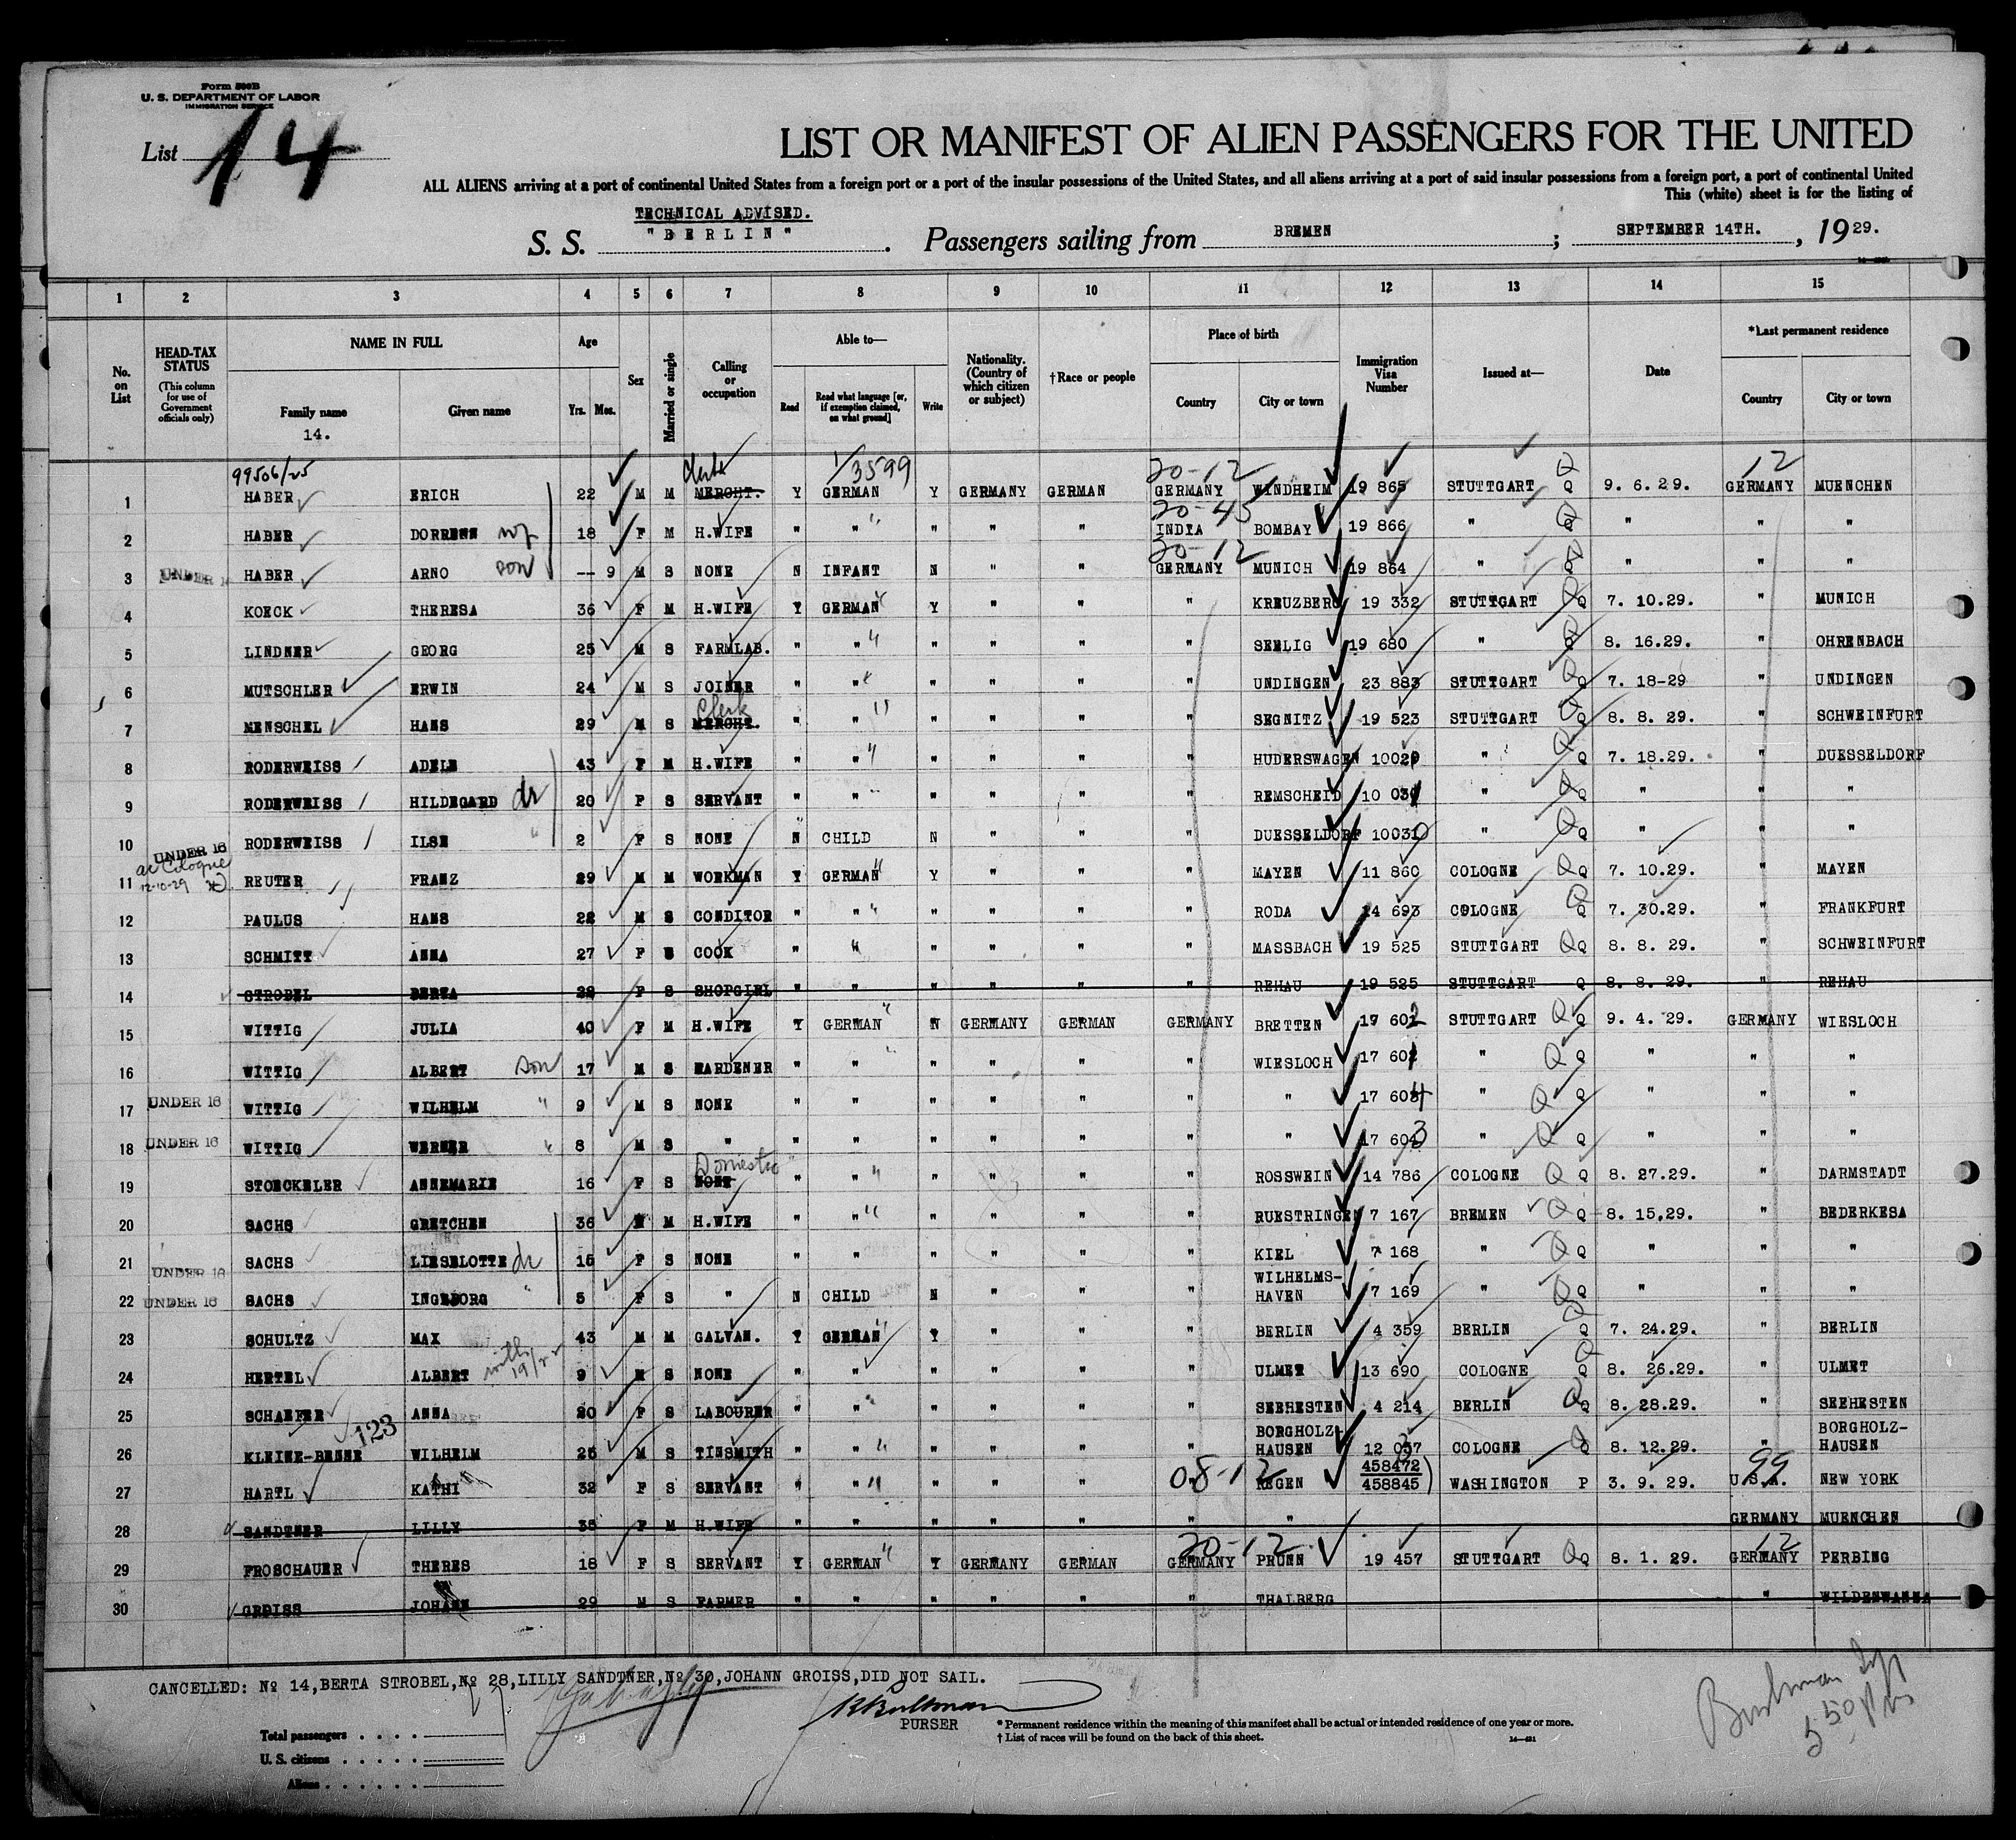 Form 500B
U. S. DEPARTMENT OF LABOR
IMMIGRATION SERVICE
List 14
LIST OR MANIFEST OF ALIEN PASSENGERS FOR THE UNITED
ALL ALIENS arriving at a port of continental United States from a foreign port or a port of the insular possessions of the United States, and all aliens arriving at a port of said insular possessions from a foreign port, a port of continental United
This (white) sheet is for the listing of
TECHNICAL ADVISED.
S. S. "BERLIN". Passengers sailing from BREMEN; SEPTEMBER 14TH., 1929.
1 2 3 4 5 6 7 8 9 10 11 12 13 14 15
No. on List
HEAD-TAX STATUS (This column for use of Government officials only)
NAME IN FULL Family name Given name
14.
Age Yrs. Mos.
Sex
Married or single
Calling or occupation
Able to— Read Read what language [or, if exemption claimed, on what ground] Write
Nationality. (Country of which citizen or subject)
†Race or people
Place of birth Country City or town
Immigration Visa Number
Issued at—
Date
*Last permanent residence Country City or town
99506/25 1/3599 20-12 12
1 HABER ERICH 22 M M MERCHT. Y GERMAN Y GERMANY GERMAN GERMANY WINDHEIM 19 865 STUTTGART Q 9. 6. 29. GERMANY MUENCHEN
20-45
2 HABER DORREEN wf 18 F M H.WIFE " " " " " INDIA BOMBAY 19 866 " Q " " "
20-12
3 UNDER 16 HABER ARNO son -- 9 M S NONE N INFANT N " " GERMANY MUNICH 19 864 " Q " " "
4 KOECK THERESA 36 F M H.WIFE Y GERMAN Y " " " KREUZBERG 19 332 STUTTGART Q 7. 10.29. " MUNICH
5 LINDNER GEORG 25 M S FARMLAB. " " " " " " SEELIG 19 680 " Q 8. 16.29. " OHRENBACH
6 MUTSCHLER ERWIN 24 M S JOINER " " " " " " UNDINGEN 23 883 STUTTGART Q 7. 18-29 " UNDINGEN
7 MENSCHEL HANS 29 M S MERCHT. Clerk " " " " " " SEGNITZ 19 523 STUTTGART Q 8. 8. 29. " SCHWEINFURT
8 RODERWEISS ADELE 43 F M H.WIFE " " " " " " HUDERSWAGEN 10029 " Q 7. 18.29. " DUESSELDORF
9 RODERWEISS HILDEGARD dr 20 F S SERVANT " " " " " " REMSCHEID 10 031 " Q " " "
10 UNDER 16 RODERWEISS ILSE " 2 F S NONE N CHILD N " " " DUESSELDORF 10030 " Q " " "
Cologne
12-10-29
11 REUTER FRANZ 29 M M WORKMAN Y GERMAN Y " " " MAYEN 11 860 COLOGNE Q 7. 10.29. " MAYEN
12 PAULUS HANS 22 M S CONDITOR " " " " " " RODA 14 693 COLOGNE Q 7. 30.29. " FRANKFURT
13 SCHMITT ANNA 27 F S COOK " " " " " " MASSBACH 19 525 STUTTGART Q 8. 8. 29. " SCHWEINFURT
14 STROBEL BERTA 28 F S SHOPGIRL " " " " " " REHAU 19 525 STUTTGART Q 8. 8. 29. " REHAU
15 WITTIG JULIA 40 F M H.WIFE Y GERMAN N GERMANY GERMAN GERMANY BRETTEN 17 602 STUTTGART Q 9. 4. 29. GERMANY WIESLOCH
16 WITTIG ALBERT son 17 M S HARDENER " " " " " " WIESLOCH 17 601 " Q " " "
17 UNDER 16 WITTIG WILHELM " 9 M S NONE " " " " " " " 17 604 " Q " " "
18 UNDER 16 WITTIG WERNER " 8 M S " " " " " " " " 17 603 " Q " " "
19 STOECKELER ANNEMARIE 16 F S NONE Domestic " " " " " " ROSSWEIN 14 786 COLOGNE Q 8. 27.29. " DARMSTADT
20 SACHS GRETCHEN 36 M H.WIFE " " " " " " RUESTRINGEN 7 167 BREMEN Q 8. 15.29. " BEDERKESA
21 UNDER 16 SACHS LIESELOTTE dr 15 F S NONE " " " " " " KIEL 7 168 " Q " " "
22 UNDER 16 SACHS INGEBORG " 5 F S " N CHILD N " " " WILHELMS-HAVEN 7 169 " Q " " "
23 SCHULTZ MAX 43 M M GALVAN. Y GERMAN Y " " " BERLIN 4 359 BERLIN Q 7. 24.29. " BERLIN
24 HERTEL ALBERT with 19/22 9 M S NONE " " " " " " ULMET 13 690 COLOGNE Q 8. 26.29. " ULMET
25 SCHAEFER ANNA 20 F S LABOURER " " " " " " SEEHESTEN 4 214 BERLIN Q 8. 28.29. " SEEHESTEN
123
26 KLEINE-BENNE WILHELM 25 M S TINSMITH " " " " " " BORGHOLZ-HAUSEN 12 037 COLOGNE Q 8. 12.29. " BORGHOLZ-HAUSEN
08-12 99
27 HARTL KATHI 32 F S SERVANT " " " " " " REGEN 458472 458845 WASHINGTON P 3. 9. 29. U.S.A. NEW YORK
28 SANDTNER LILLY 35 F M H.WIFE " " " " " " " GERMANY MUENCHEN
20-12 12
29 FROSCHAUER THERES 18 F S SERVANT Y GERMAN Y GERMANY GERMAN GERMANY PRUNN 19 457 STUTTGART Q 8. 1. 29. GERMANY PERBING
30 GROISS JOHANN 29 M S FARMER " " " " " " THALBERG " WILDENWANNA
CANCELLED: No 14,BERTA STROBEL,No 28,LILLY SANDTNER,No 30,JOHANN GROISS,DID NOT SAIL.
PURSER
Total passengers
U. S. citizens
Aliens
* Permanent residence within the meaning of this manifest shall be actual or intended residence of one year or more.
† List of races will be found on the back of this sheet.